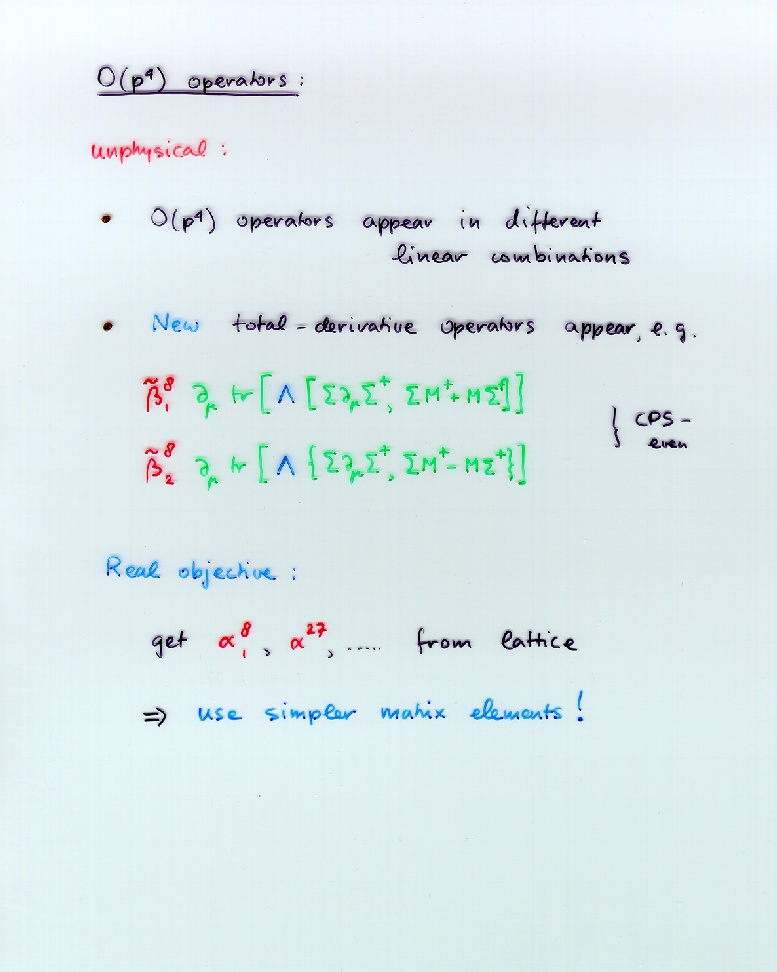 O(p⁴) operators :
unphysical :
• O(p⁴) operators appear in different
linear combinations
• New total-derivative operators appear, e.g.
β̃₁⁸ ∂_μ tr [ Λ [ Σ∂_μΣ⁺, ΣM⁺+MΣ⁺ ] ]
β̃₂⁸ ∂_μ tr [ Λ { Σ∂_μΣ⁺, ΣM⁺-MΣ⁺ } ]
} CPS-
even
Real objective :
get α₁⁸, α²⁷, ..... from lattice
⇒ use simpler matrix elements !